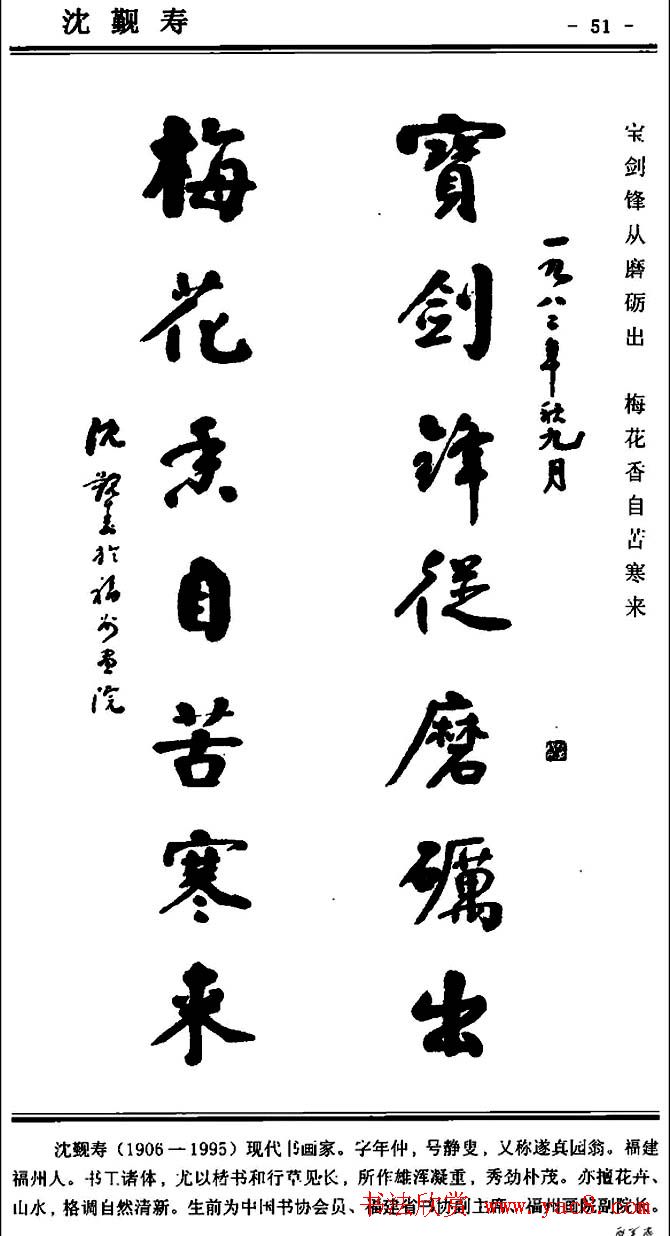 沈觐寿
- 51 -
宝剑锋从磨砺出 梅花香自苦寒来
一九八二年秋九月
寶劍鋒從磨礪出
梅花香自苦寒来
沈觐寿於福州画院
沈觐寿(1906—1995)现代书画家。字年仲,号静叟,又称遂真园翁。福建
福州人。书工诸体,尤以楷书和行草见长,所作雄浑凝重,秀劲朴茂。亦擅花卉、
山水,格调自然清新。生前为中国书协会员、福建省书协副主席、福州画院副院长。
书法欣赏 www.yac8.com